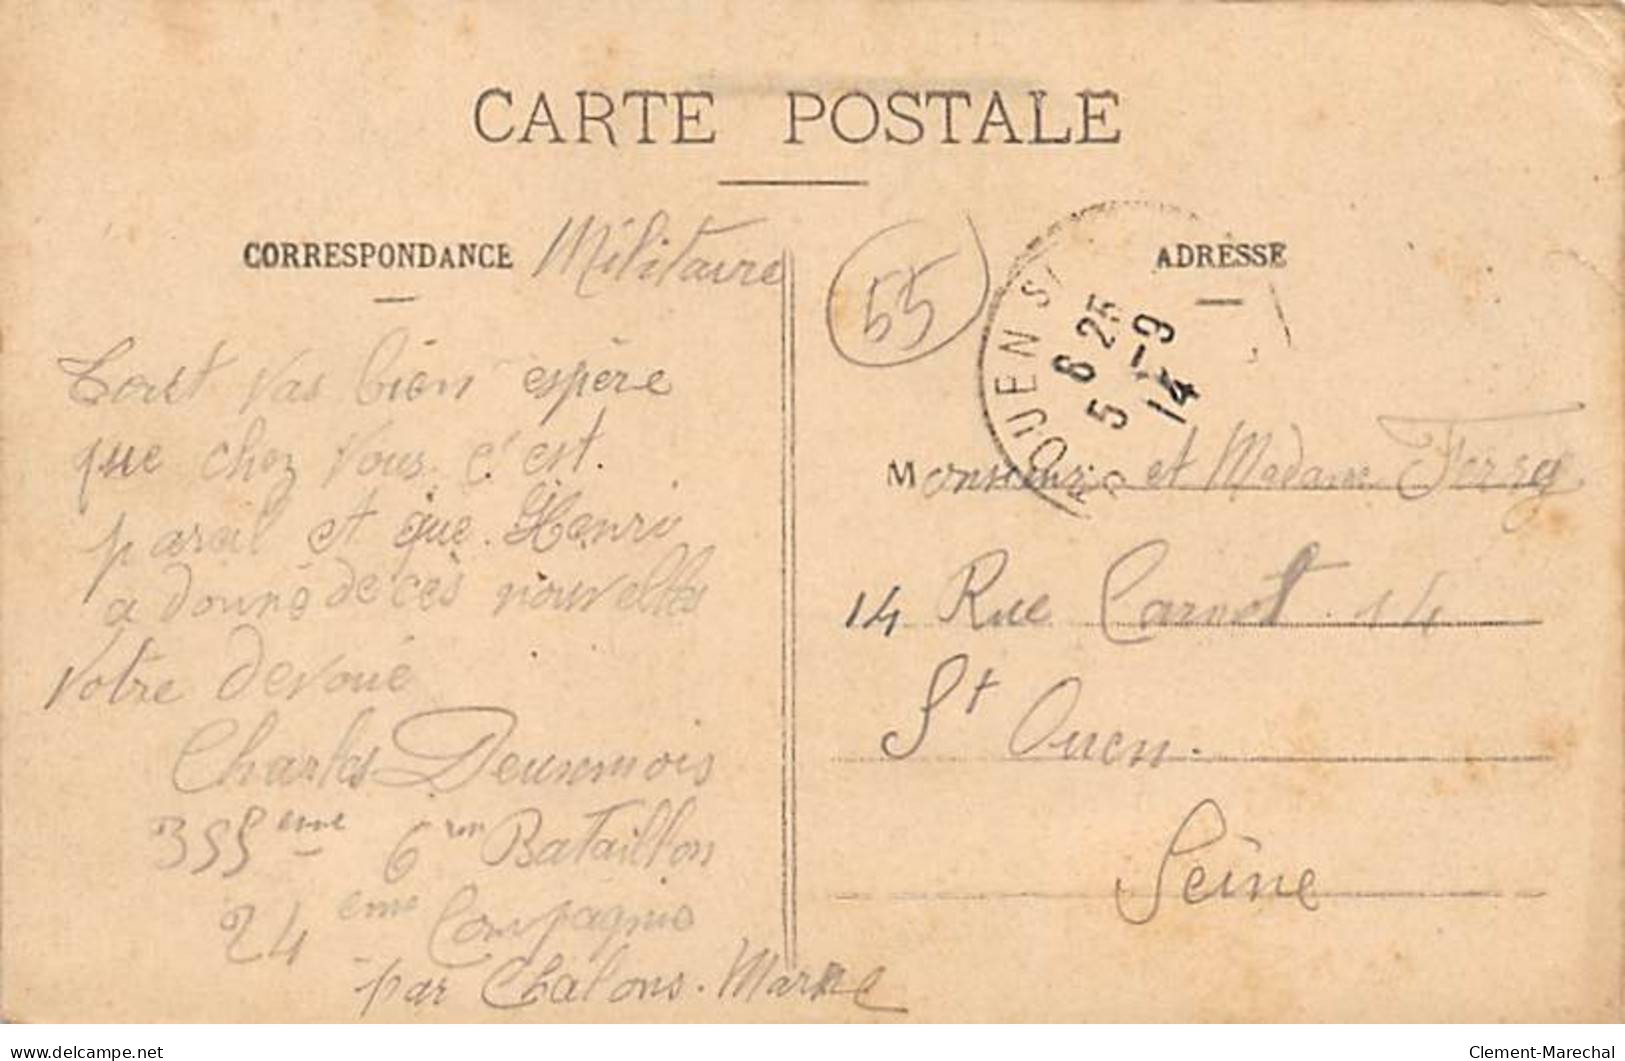 CARTE POSTALE
CORRESPONDANCE Militaire
Tout vas bien espère
que chez vous c'est
pareil et que Henri
a donné de ces nouvelles
Votre dévoué
Charles
355eme 6em Bataillon
24eme Compagnie
par Chalons. Marne
55
ADRESSE
6 25
5 -9
14
Monsieur et Madame Ferry
14 Rue Carnot 14
St Ouen.
Seine
delcampe.net
Clement-Marechal